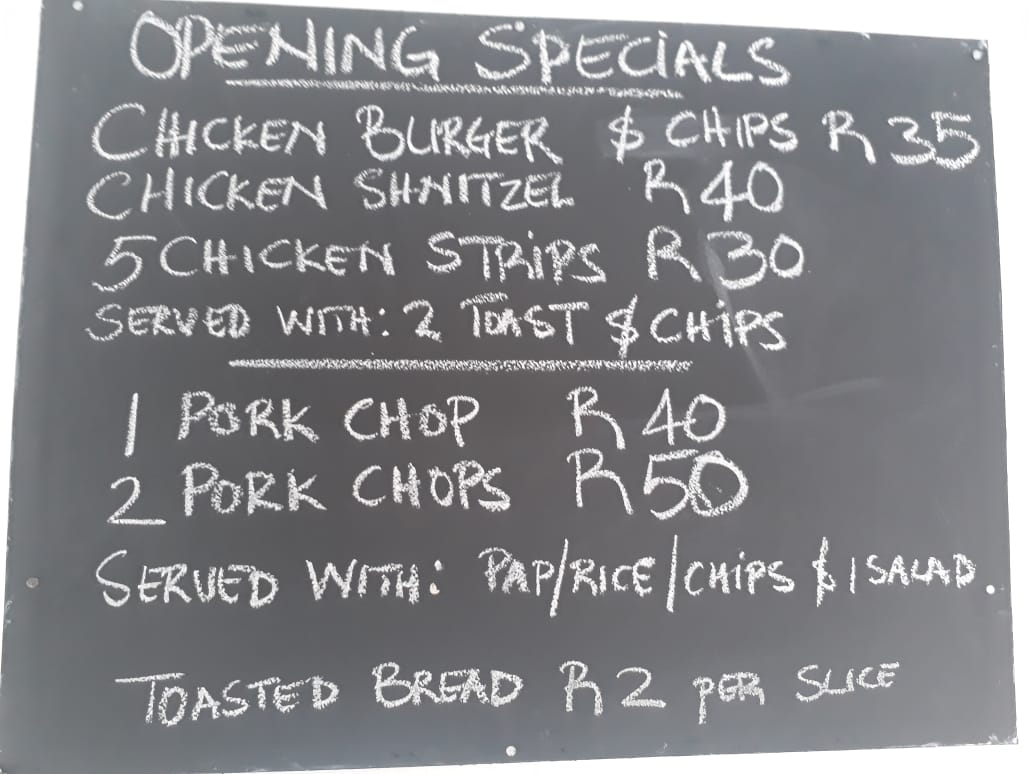 OPENING SPECIALS
CHICKEN BURGER & CHIPS R35
CHICKEN SHNITZEL R40
5 CHICKEN STRIPS R30
SERVED WITH: 2 TOAST & CHIPS
1 PORK CHOP R40
2 PORK CHOPS R50
SERVED WITH: PAP/RICE/CHIPS & 1 SALAD.
TOASTED BREAD R2 PER SLICE